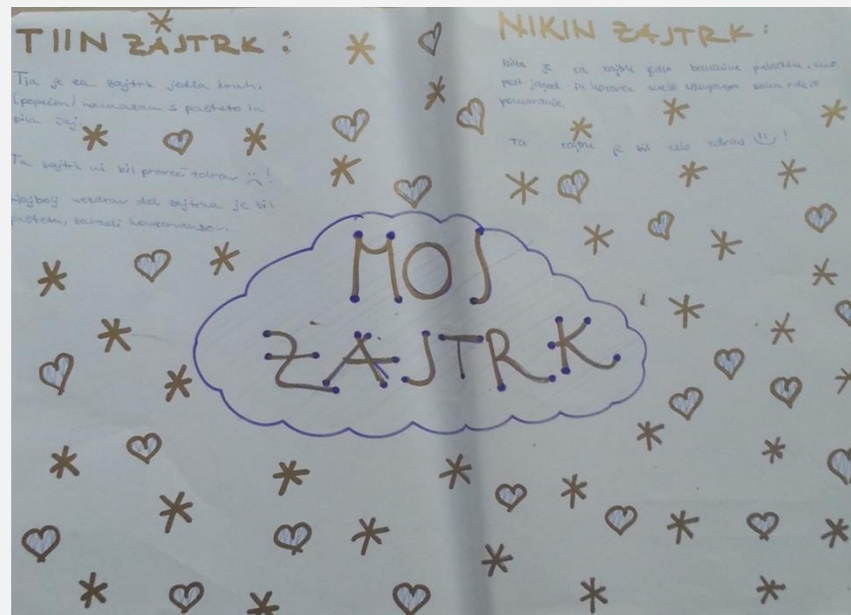 TIIN ZAJTRK:
Tia je za zajtrk jedla kruh,
(popečen) namazan s pašteto in
pila čaj.
Ta zajtrk ni bil preveč zdrav :( !
Najbolj nezdrav del zajtrka je bil
pašteta, zaradi konzervansov.
NIKIN ZAJTRK:
Nika je za zajtrk bananine
jagod in kozarec
pomaranče.
Ta zajtrk je bil zelo zdrav :) !
MOJ
ZAJTRK